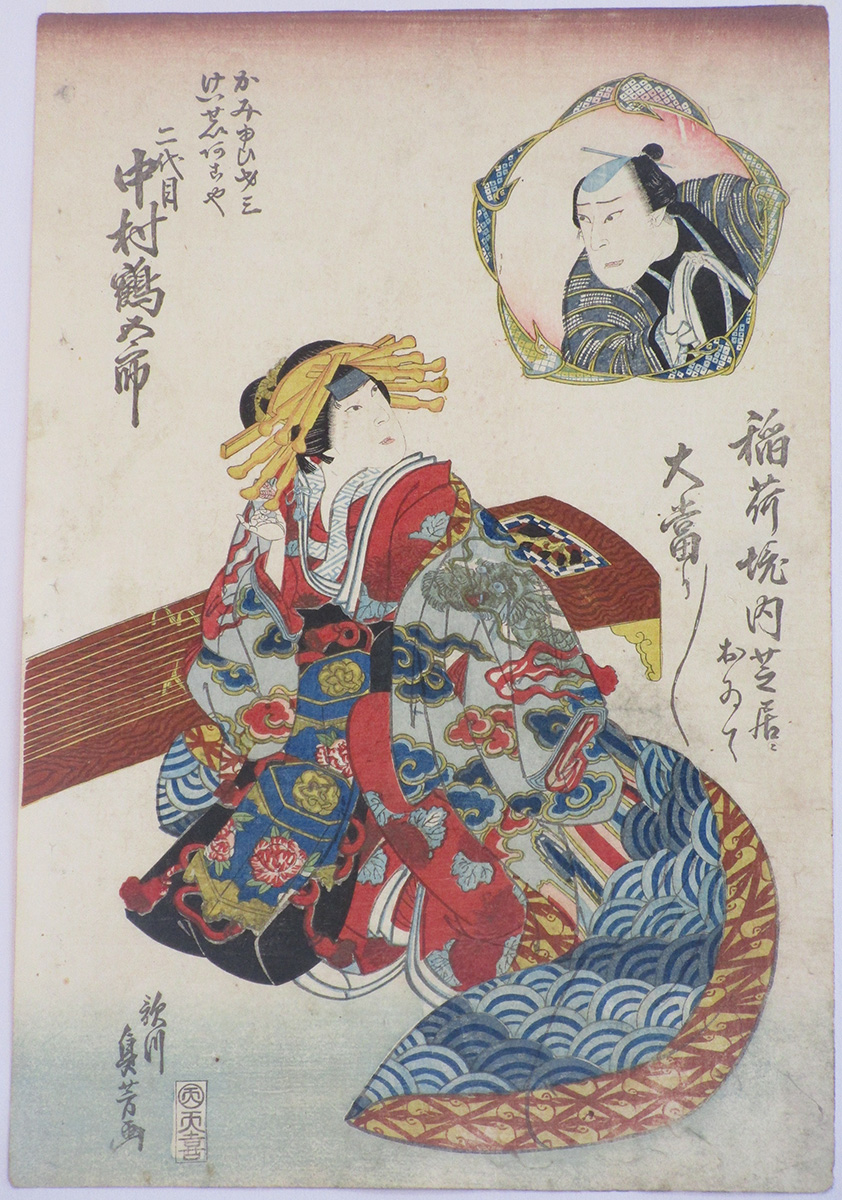 稲荷境内芝居ニおゐて
大當り
かみゆひ才三
けいせいあこや
二代目
中村鶴五郎
歌川
貞芳画
天喜